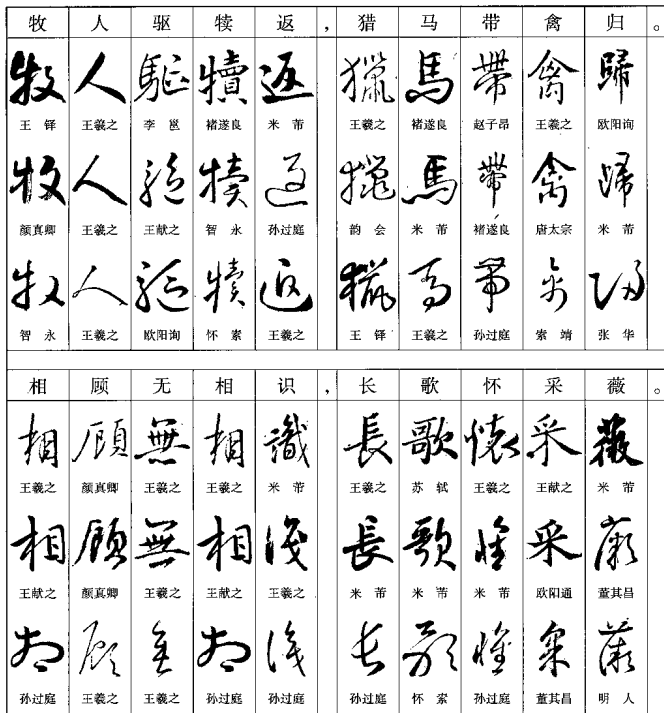 牧人驱犊返,猎马带禽归。
牧人驅犢返獵馬帶禽歸
王铎 王羲之 李邕 褚遂良 米芾 王羲之 褚遂良 赵子昂 王羲之 欧阳询
牧人驅犢返獵馬帶禽歸
颜真卿 王羲之 王献之 智永 孙过庭 韵会 米芾 褚遂良 唐太宗 米芾
牧人驅犢返獵馬帶禽歸
智永 王羲之 欧阳询 怀素 王羲之 王铎 王羲之 孙过庭 索靖 张华
相顾无相识,长歌怀采薇。
相顧無相識長歌懷采薇
王羲之 颜真卿 王羲之 王羲之 米芾 王羲之 苏轼 王羲之 王献之 米芾
相顧無相識長歌懷采薇
王献之 颜真卿 王羲之 王献之 王羲之 米芾 米芾 米芾 欧阳通 董其昌
相顧無相識長歌懷采薇
孙过庭 王羲之 王羲之 孙过庭 孙过庭 孙过庭 怀素 孙过庭 董其昌 明人